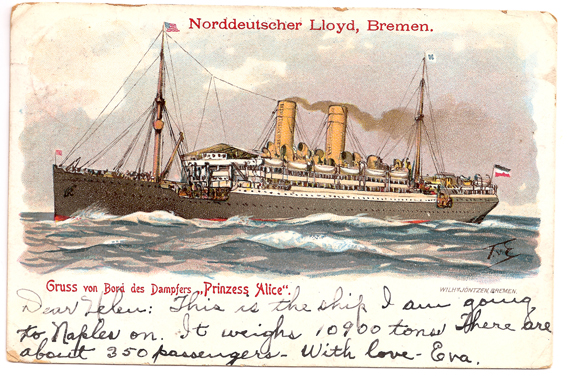 Norddeutscher Lloyd, Bremen.
Gruss von Bord des Dampfers „Prinzess Alice".
WILH. JÖNTZEN, BREMEN.
Dear Helen: This is the ship I am going
to Naples on. It weighs 10900 tons There are
about 350 passengers - With love - Eva.